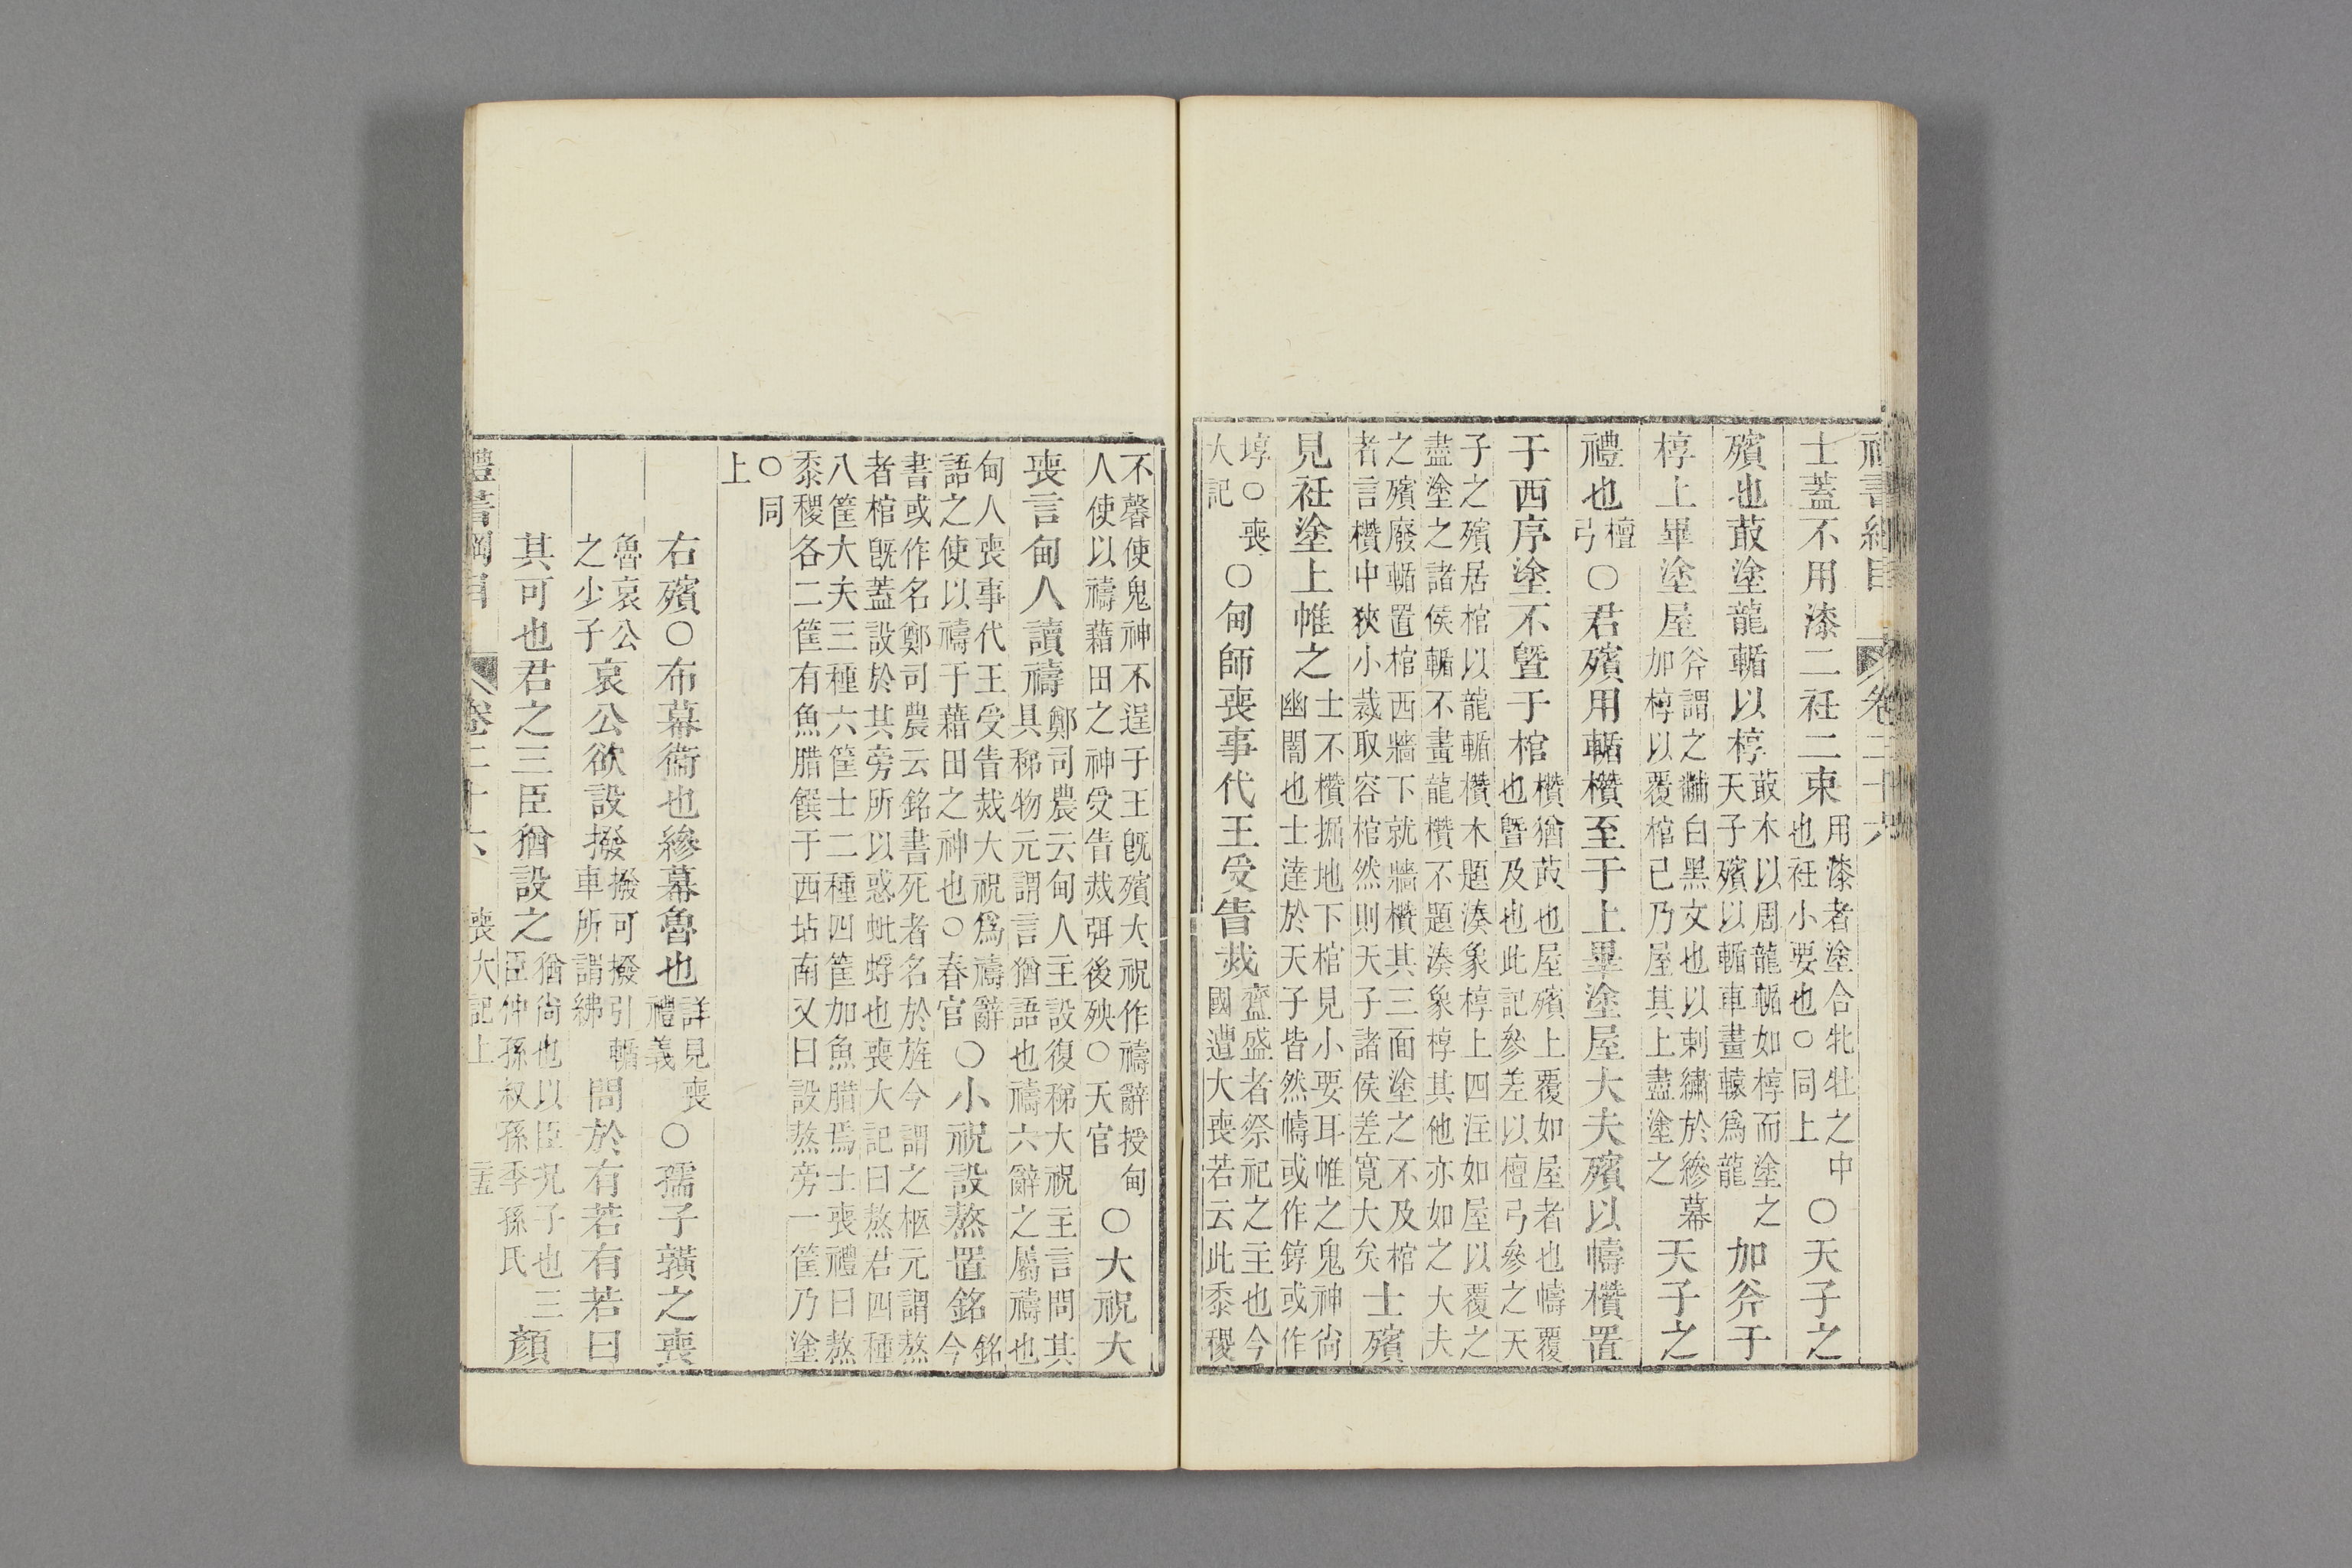 禮書綱目 卷二十六
士蓋不用漆二衽二束用漆者塗合牝牡之中也衽小要也○同上○天子之
殯也菆塗龍輴以椁菆木以周龍輴如椁而塗之天子殯以輴車畫轅爲龍加斧于
椁上畢塗屋斧謂之黼白黑文也以刺繡於縿幕加椁以覆棺已乃屋其上盡塗之天子之
禮也檀弓○君殯用輴欑至于上畢塗屋大夫殯以幬欑置
于西序塗不曁于棺欑猶菆也屋殯上覆如屋者也幬覆也曁及也此記參差以檀弓參之天
子之殯居棺以龍輴欑木題湊象椁上四注如屋以覆之
盡塗之諸侯輴不畫龍欑不題湊象椁其他亦如之大夫
之殯廢輴置棺西牆下就牆欑其三面塗之不及棺
者言欑中狹小裁取容棺然則天子諸侯差寬大矣士殯
見衽塗上帷之士不欑掘地下棺見小要耳帷之鬼神尙幽闇也士達於天子皆然幬或作錞或作
埻○喪大記○甸師喪事代王受眚烖齍盛者祭祀之主也今國遭大喪若云此黍稷
不馨使鬼神不逞于王旣殯大祝作禱辭授甸
人使以禱藉田之神受眚烖弭後殃○天官○大祝大
喪言甸人讀禱鄭司農云甸人主設復稊大祝主言問其具稊物元謂言猶語也禱六辭之屬禱也
甸人喪事代王受眚烖大祝爲禱辭
語之使以禱于藉田之神也○春官○小祝設熬置銘銘今
書或作名鄭司農云銘書死者名於旌今謂之柩元謂熬
者棺旣蓋設於其旁所以惑蚍蜉也喪大記曰熬君四種
八筐大夫三種六筐士二種四筐加魚腊焉士喪禮曰熬
黍稷各二筐有魚腊饌于西坫南又曰設熬旁一筐乃塗
○同上
右殯○布幕衞也縿幕魯也詳見喪禮義○孺子䵍之喪
魯哀公之少子哀公欲設撥撥可撥引輴車所謂紼問於有若有若曰
其可也君之三臣猶設之猶尙也以臣況子也三臣仲孫叔孫季孫氏顏
禮書綱目 卷二十六 喪大記上